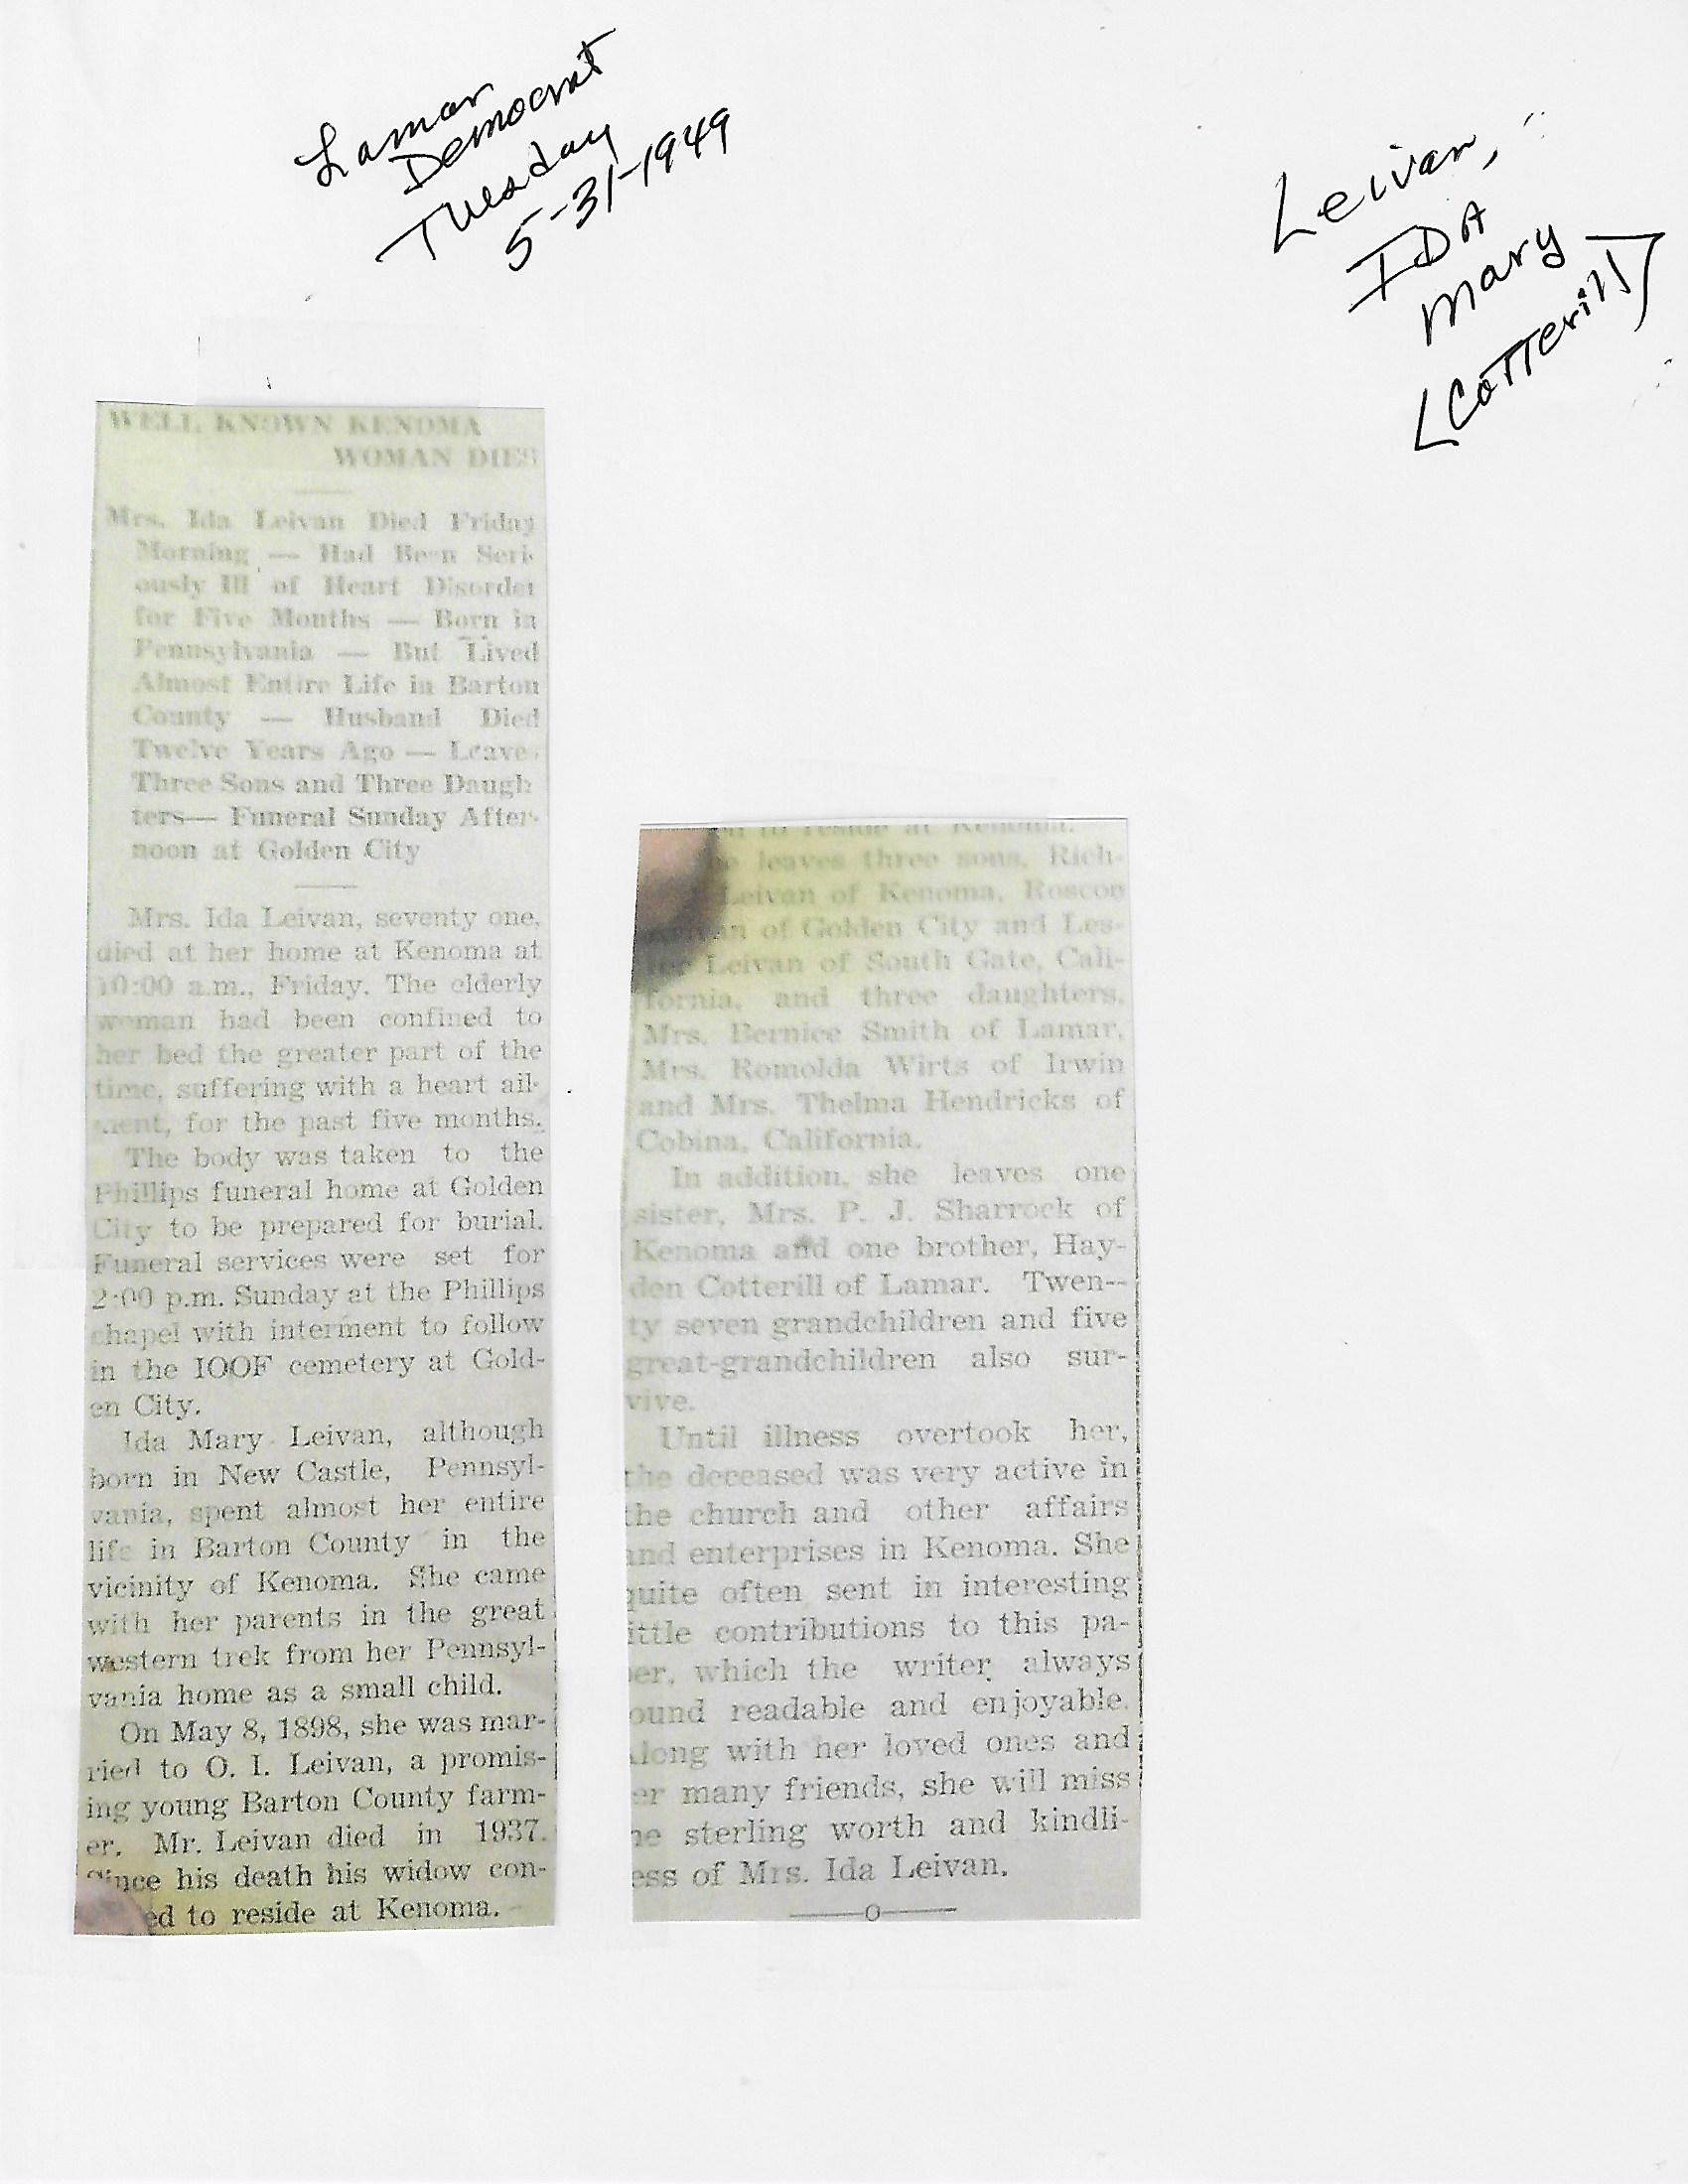 Lamar
Democrat
Tuesday
5-31-1949
Leivan,
IDA
Mary
(Cotterill)
WELL KNOWN KENOMA
WOMAN DIES
Mrs. Ida Leivan Died Friday
Morning — Had Been Seri-
ously Ill of Heart Disorder
for Five Months — Born in
Pennsylvania — But Lived
Almost Entire Life in Barton
County — Husband Died
Twelve Years Ago — Leave
Three Sons and Three Daugh-
ters— Funeral Sunday After-
noon at Golden City
Mrs. Ida Leivan, seventy one,
died at her home at Kenoma at
10:00 a.m., Friday. The elderly
woman had been confined to
her bed the greater part of the
time, suffering with a heart ail-
ment, for the past five months.
The body was taken to the
Phillips funeral home at Golden
City to be prepared for burial.
Funeral services were set for
2:00 p.m. Sunday at the Phillips
chapel with interment to follow
in the IOOF cemetery at Gold-
en City.
Ida Mary Leivan, although
born in New Castle, Pennsyl-
vania, spent almost her entire
life in Barton County in the
vicinity of Kenoma. She came
with her parents in the great
western trek from her Pennsyl-
vania home as a small child.
On May 8, 1898, she was mar-
ried to O. I. Leivan, a promis-
ing young Barton County farm-
er. Mr. Leivan died in 1937.
Since his death his widow con-
ed to reside at Kenoma.
to reside at Kenoma.
leaves three sons, Rich-
Leivan of Kenoma, Roscoe
of Golden City and Les-
ter Leivan of South Gate, Cali-
fornia, and three daughters,
Mrs. Bernice Smith of Lamar,
Mrs. Romolda Wirts of Irwin
and Mrs. Thelma Hendricks of
Cobina, California.
In addition, she leaves one
sister, Mrs. P. J. Sharrock of
Kenoma and one brother, Hay-
den Cotterill of Lamar. Twen--
ty seven grandchildren and five
great-grandchildren also sur-
vive.
Until illness overtook her,
the deceased was very active in
the church and other affairs
and enterprises in Kenoma. She
quite often sent in interesting
ittle contributions to this pa-
per, which the writer always
ound readable and enjoyable.
Along with her loved ones and
er many friends, she will miss
he sterling worth and kindli-
ess of Mrs. Ida Leivan.
—o—